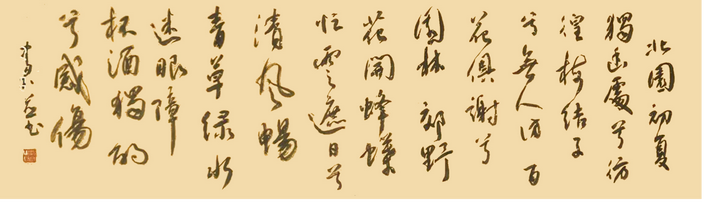 北園初夏
獨幽處兮彷
徨枝结子
兮無人访百
花俱謝兮
園林郊野
花開蜂蝶
忙雲遮日兮
清風暢
青草绿水
迷眼障
杯酒獨酌
兮感傷
书